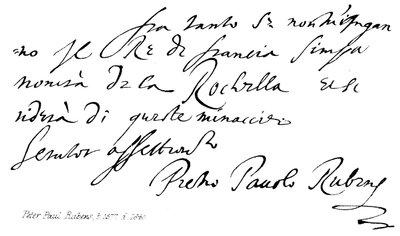 fra tanto se non m'ingan
=no Il Re di francia simpa
tronirà de la Rochella et si
riderà di queste minaccie
Servitor affettionato
Pietro Pauolo Rubens
Peter Paul Rubens, b. 1577 d. 1640